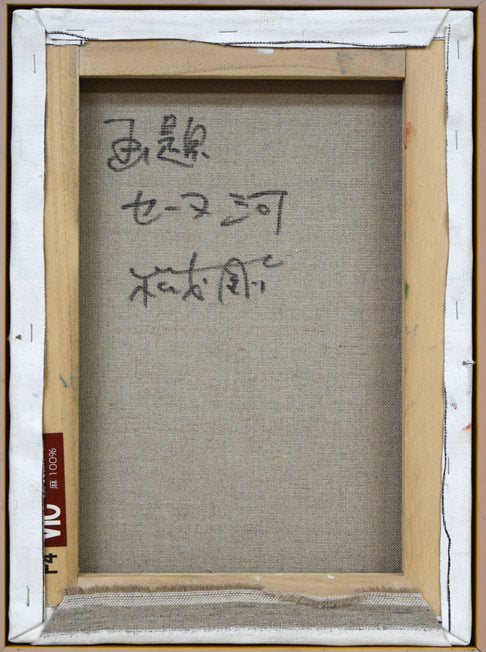 画題
セーヌ河
麻 100%
VIC
F4